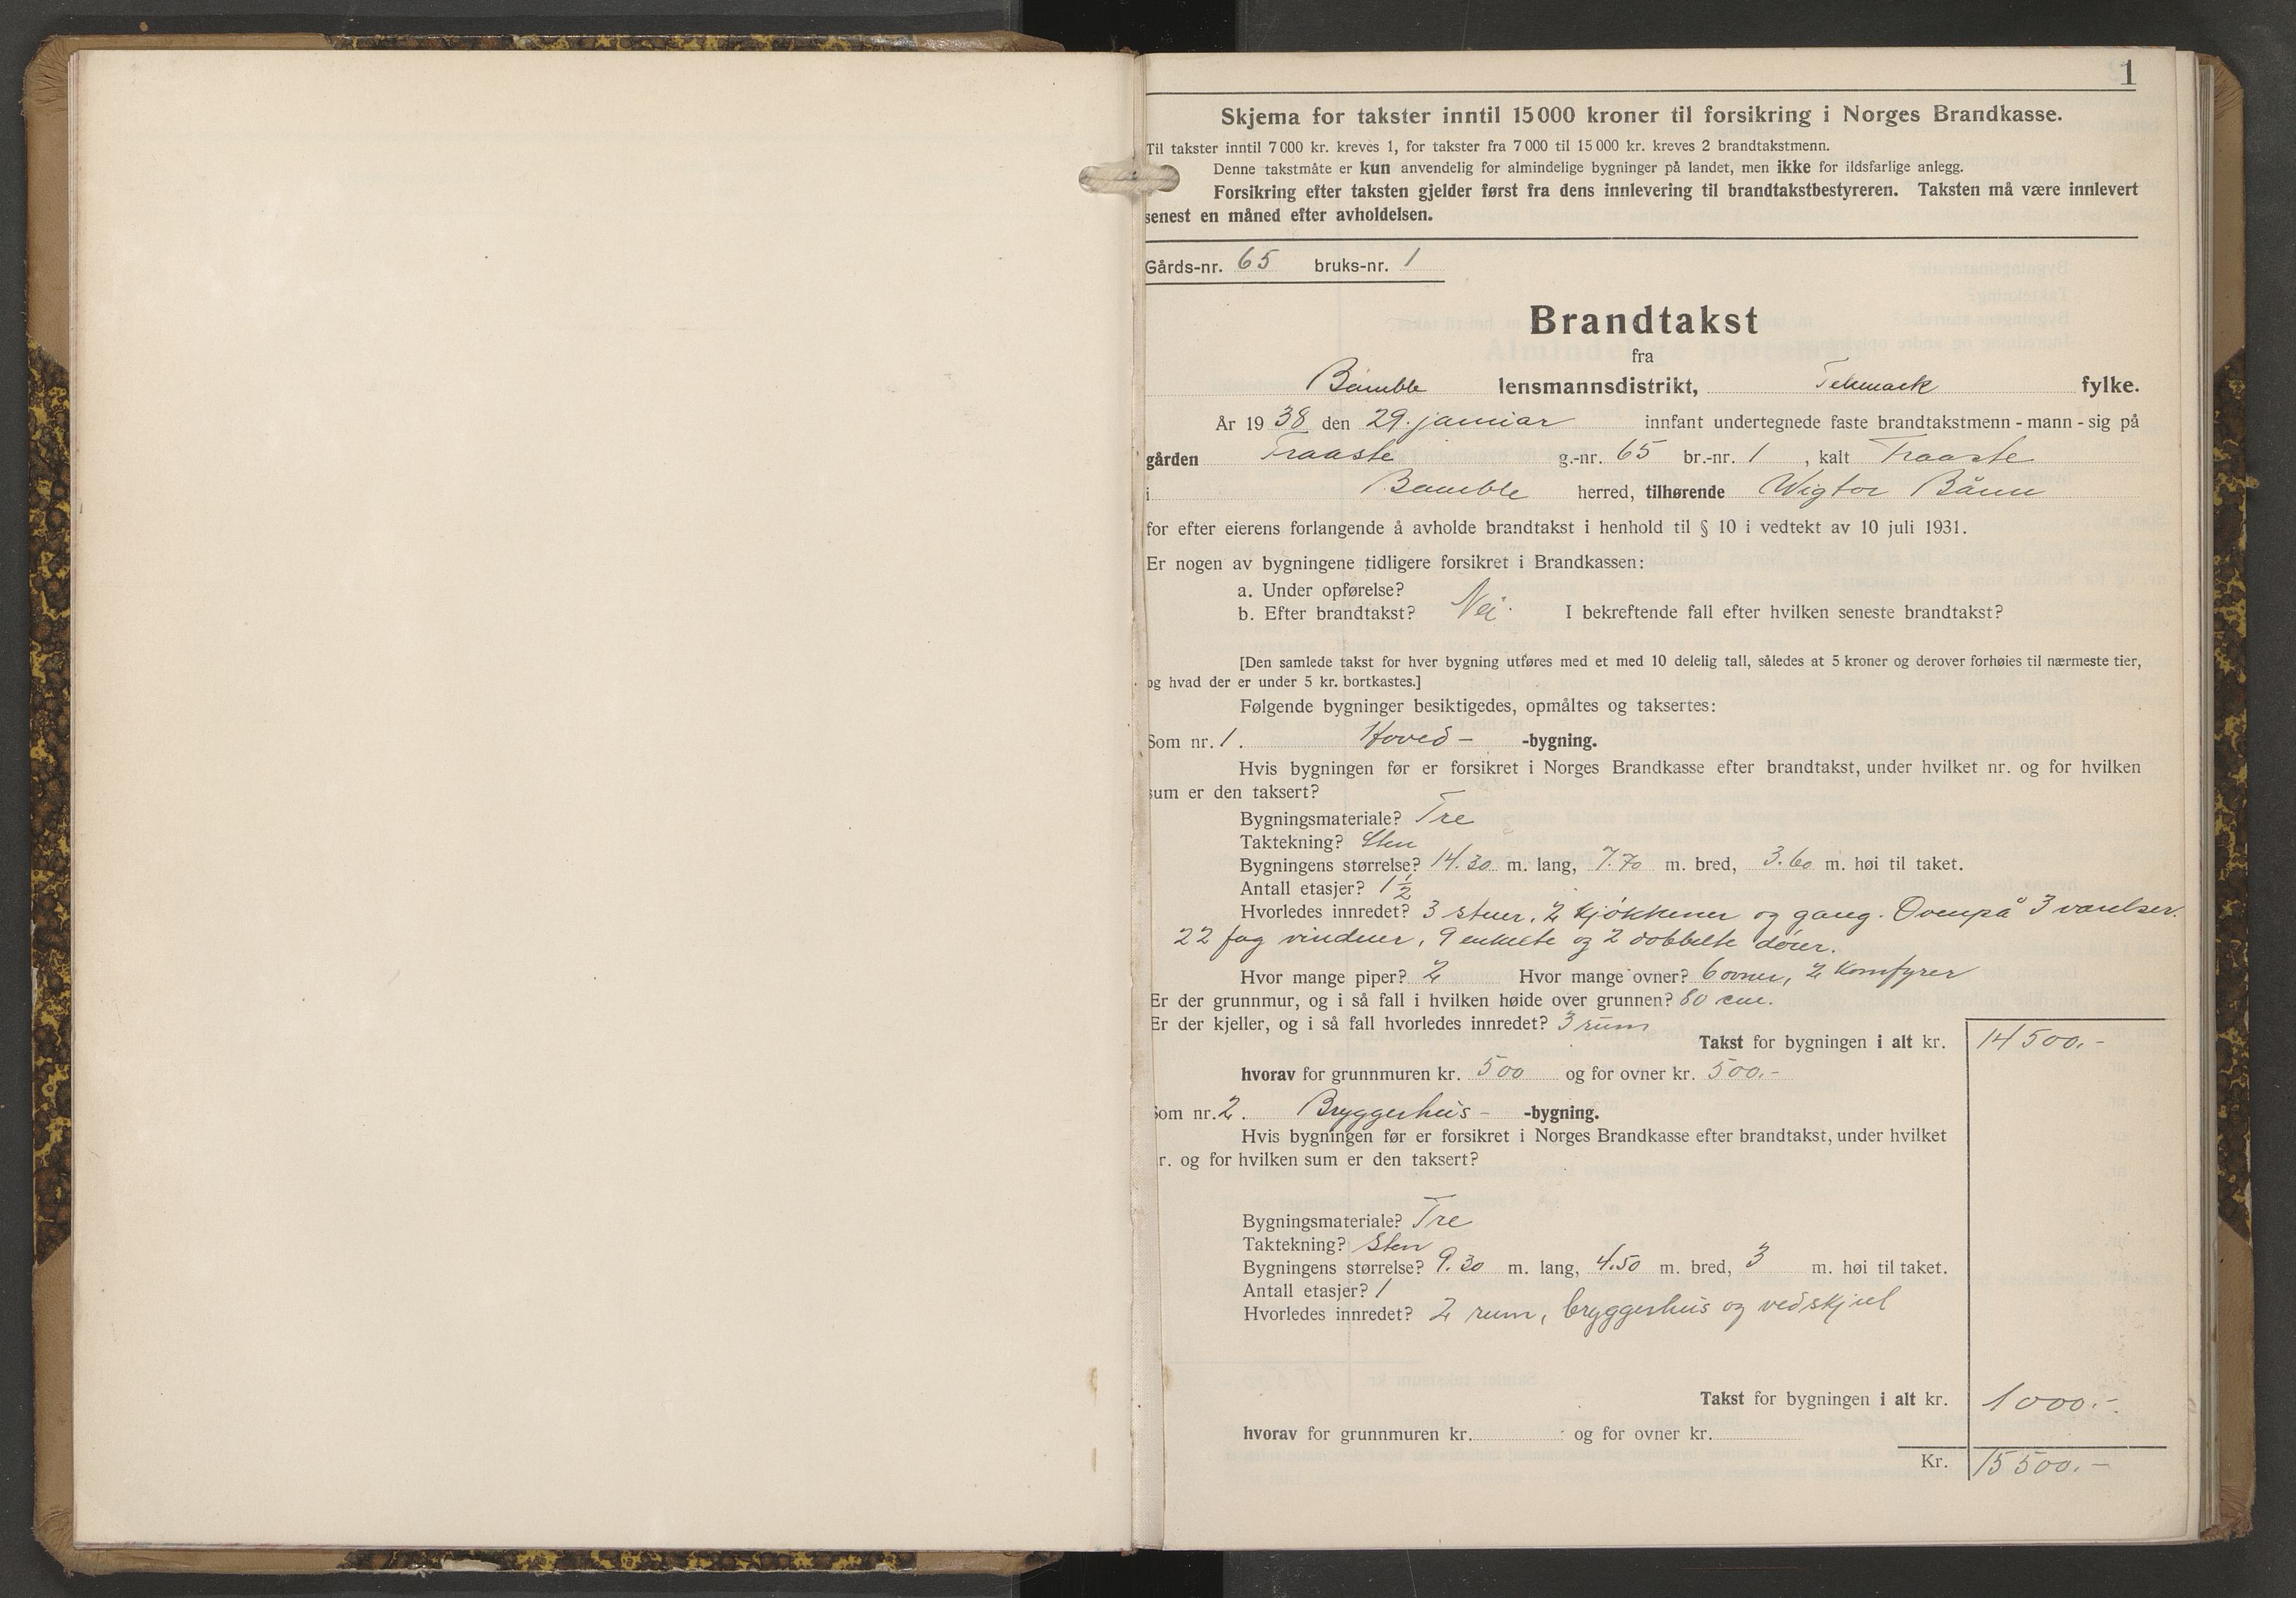 1
Skjema for takster inntil 15 000 kroner til forsikring i Norges Brandkasse.
Til takster inntil 7 000 kr. kreves 1, for takster fra 7 000 til 15 000 kr. kreves 2 brandtakstmenn.
Denne takstmåte er kun anvendelig for almindelige bygninger på landet, men ikke for ildsfarlige anlegg.
Forsikring efter taksten gjelder først fra dens innlevering til brandtakstbestyreren. Taksten må være innlevert
senest en måned efter avholdelsen.
Gårds-nr. 65 bruks-nr. 1
Brandtakst
fra
Bamble lensmannsdistrikt, Telemark fylke.
År 19 38 den 29. januar innfant undertegnede faste brandtakstmenn - mann - sig på
gården Traaste g.-nr. 65 br.-nr. 1 , kalt Traaste
i Bamble herred, tilhørende Wigtor
for efter eierens forlangende å avholde brandtakst i henhold til § 10 i vedtekt av 10 juli 1931.
Er nogen av bygningene tidligere forsikret i Brandkassen:
a. Under opførelse?
b. Efter brandtakst? Nei. I bekreftende fall efter hvilken seneste brandtakst?
[Den samlede takst for hver bygning utføres med et med 10 delelig tall, således at 5 kroner og derover forhøies til nærmeste tier,
og hvad der er under 5 kr. bortkastes.]
Følgende bygninger besiktigedes, opmåltes og taksertes:
Som nr. 1. Hoved- -bygning.
Hvis bygningen før er forsikret i Norges Brandkasse efter brandtakst, under hvilket nr. og for hvilken
sum er den taksert?
Bygningsmateriale? Tre
Taktekning? Sten
Bygningens størrelse? 14.30 m. lang, 7.70 m. bred, 3.60 m. høi til taket.
Antall etasjer? 1 1/2
Hvorledes innredet? 3 stuer, 2 kjøkkener og gang. Ovenpå 3 værelser.
22 fag vinduer, 9 enkelte og 2 dobbelte dører.
Hvor mange piper? 2 Hvor mange ovner? 6 ovner, 2 komfyrer
Er der grunnmur, og i så fall i hvilken høide over grunnen? 80 cm.
Er der kjeller, og i så fall hvorledes innredet? 3 rum
Takst for bygningen i alt kr. 14 500.-
hvorav for grunnmuren kr. 500 og for ovner kr. 500.-
Som nr. 2. Bryggerhus- -bygning.
Hvis bygningen før er forsikret i Norges Brandkasse efter brandtakst, under hvilket
r. og for hvilken sum er den taksert?
Bygningsmateriale? Tre
Taktekning? Sten
Bygningens størrelse? 9.30 m. lang, 4.50 m. bred, 3 m. høi til taket.
Antall etasjer? 1
Hvorledes innredet? 2 rum, bryggerhus og vedskjul
Takst for bygningen i alt kr. 1000.-
hvorav for grunnmuren kr. og for ovner kr.
Kr. 15 500.-